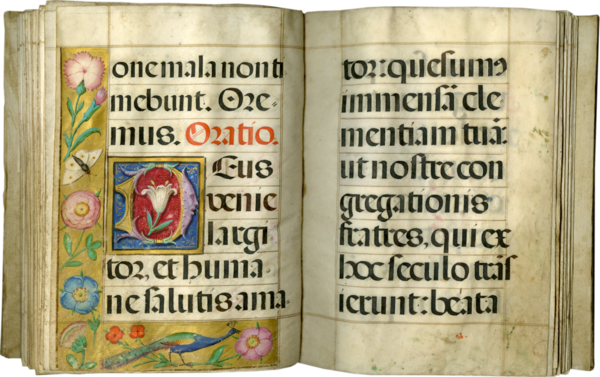 one mala non ti
mebunt. Ore-
mus. Oratio.
Deus
venie
largi
tor, et huma-
ne salutis ama-
tor: quesumꝰ
immensã cle
mentiam tuã:
ut nostre con
gregationis
fratres, qui ex
hoc seculo trãs
ierunt: beáta